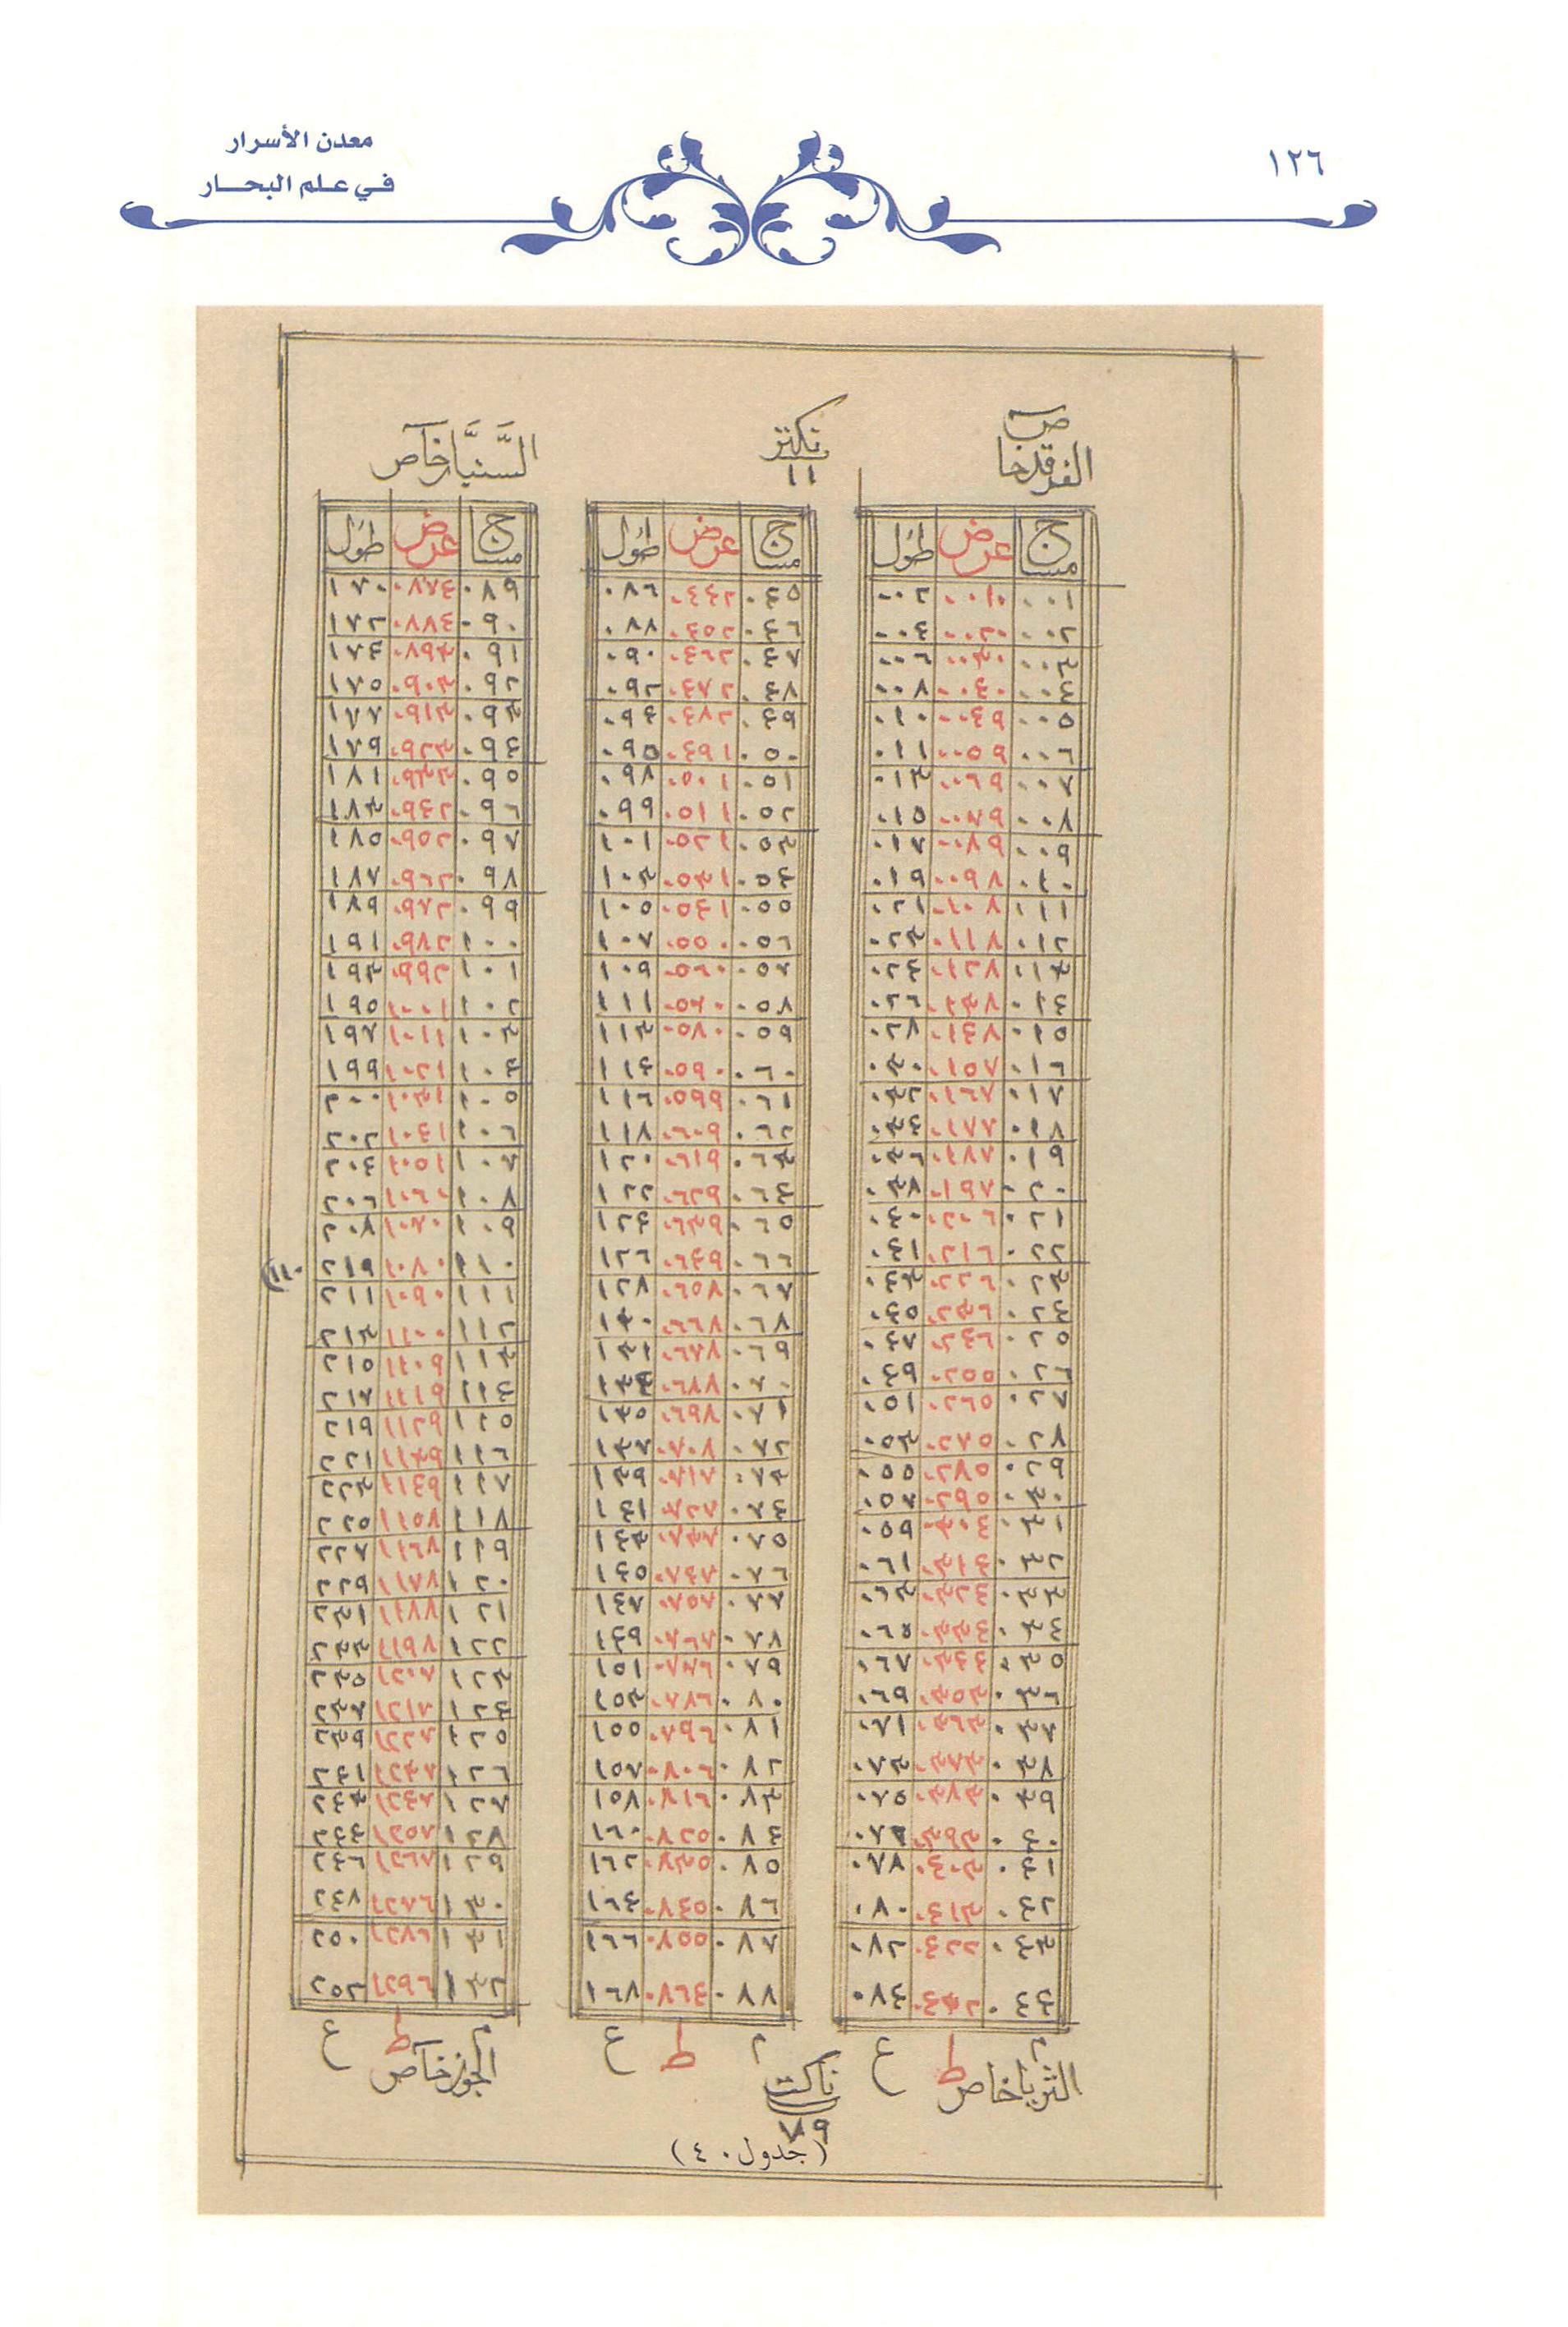 معدن الأسرار
في علم البحار
١٢٦
الفرقد خاص
مساج عرض طول
٠٠١ ٠٠١٠ ٠٠٢
٠٠٢ ٠٠٢٠ ٠٠٤
٠٠٣ ٠٠٣٠ ٠٠٦
٠٠٤ ٠٠٤٠ ٠٠٨
٠٠٥ ٠٠٤٩ ٠١٠
٠٠٦ ٠٠٥٩ ٠١١
٠٠٧ ٠٠٦٩ ٠١٣
٠٠٨ ٠٠٧٩ ٠١٥
٠٠٩ ٠٠٨٩ ٠١٧
٠١٠ ٠٠٩٨ ٠١٩
٠١١ ٠١٠٨ ٠٢١
٠١٢ ٠١١٨ ٠٢٣
٠١٣ ٠١٢٨ ٠٢٤
٠١٤ ٠١٣٨ ٠٢٦
٠١٥ ٠١٤٧ ٠٢٨
٠١٦ ٠١٥٧ ٠٣٠
٠١٧ ٠١٦٧ ٠٣٢
٠١٨ ٠١٧٧ ٠٣٤
٠١٩ ٠١٨٧ ٠٣٦
٠٢٠ ٠١٩٧ ٠٣٨
٠٢١ ٠٢٠٦ ٠٤٠
٠٢٢ ٠٢١٦ ٠٤١
٠٢٣ ٠٢٢٦ ٠٤٣
٠٢٤ ٠٢٣٦ ٠٤٥
٠٢٥ ٠٢٤٦ ٠٤٧
٠٢٦ ٠٢٥٥ ٠٤٩
٠٢٧ ٠٢٦٥ ٠٥١
٠٢٨ ٠٢٧٥ ٠٥٣
٠٢٩ ٠٢٨٥ ٠٥٥
٠٣٠ ٠٢٩٥ ٠٥٧
٠٣١ ٠٣٠٤ ٠٥٩
٠٣٢ ٠٣١٤ ٠٦١
٠٣٣ ٠٣٢٤ ٠٦٣
٠٣٤ ٠٣٣٤ ٠٦٥
٠٣٥ ٠٣٤٤ ٠٦٧
٠٣٦ ٠٣٥٣ ٠٦٩
٠٣٧ ٠٣٦٣ ٠٧١
٠٣٨ ٠٣٧٣ ٠٧٣
٠٣٩ ٠٣٨٣ ٠٧٥
٠٤٠ ٠٣٩٣ ٠٧٧
٠٤١ ٠٤٠٣ ٠٧٨
٠٤٢ ٠٤١٣ ٠٨٠
٠٤٣ ٠٤٢٢ ٠٨٢
٠٤٤ ٠٤٣٢ ٠٨٤
الثريا خاص
م ط ع
نكتر
١١
مساج عرض طول
٠٤٥ ٠٤٤٢ ٠٨٦
٠٤٦ ٠٤٥٢ ٠٨٨
٠٤٧ ٠٤٦٢ ٠٩٠
٠٤٨ ٠٤٧٢ ٠٩٢
٠٤٩ ٠٤٨٢ ٠٩٤
٠٥٠ ٠٤٩١ ٠٩٥
٠٥١ ٠٥٠١ ٠٩٨
٠٥٢ ٠٥١١ ٠٩٩
٠٥٣ ٠٥٢١ ١٠١
٠٥٤ ٠٥٣١ ١٠٣
٠٥٥ ٠٥٤١ ١٠٥
٠٥٦ ٠٥٥٠ ١٠٧
٠٥٧ ٠٥٦٠ ١٠٩
٠٥٨ ٠٥٧٠ ١١١
٠٥٩ ٠٥٨٠ ١١٣
٠٦٠ ٠٥٩٠ ١١٤
٠٦١ ٠٥٩٩ ١١٦
٠٦٢ ٠٦٠٩ ١١٨
٠٦٣ ٠٦١٩ ١٢٠
٠٦٤ ٠٦٢٩ ١٢٢
٠٦٥ ٠٦٣٩ ١٢٤
٠٦٦ ٠٦٤٩ ١٢٦
٠٦٧ ٠٦٥٨ ١٢٨
٠٦٨ ٠٦٦٨ ١٣٠
٠٦٩ ٠٦٧٨ ١٣١
٠٧٠ ٠٦٨٨ ١٣٤
٠٧١ ٠٦٩٨ ١٣٥
٠٧٢ ٠٧٠٨ ١٣٧
٠٧٣ ٠٧١٨ ١٣٩
٠٧٤ ٠٧٢٨ ١٤١
٠٧٥ ٠٧٣٧ ١٤٣
٠٧٦ ٠٧٤٧ ١٤٥
٠٧٧ ٠٧٥٧ ١٤٧
٠٧٨ ٠٧٦٧ ١٤٩
٠٧٩ ٠٧٧٦ ١٥١
٠٨٠ ٠٧٨٦ ١٥٣
٠٨١ ٠٧٩٦ ١٥٥
٠٨٢ ٠٨٠٦ ١٥٧
٠٨٣ ٠٨١٦ ١٥٨
٠٨٤ ٠٨٢٥ ١٦٠
٠٨٥ ٠٨٣٥ ١٦٢
٠٨٦ ٠٨٤٥ ١٦٤
٠٨٧ ٠٨٥٥ ١٦٦
٠٨٨ ٠٨٦٤ ١٦٨
م ط ع
ناكت
٧٩
السنبار خاص
مساج عرض طول
٠٨٩ ٠٨٧٤ ١٧٠
٠٩٠ ٠٨٨٤ ١٧٢
٠٩١ ٠٨٩٣ ١٧٤
٠٩٢ ٠٩٠٣ ١٧٥
٠٩٣ ٠٩١٣ ١٧٧
٠٩٤ ٠٩٢٣ ١٧٩
٠٩٥ ٠٩٣٣ ١٨١
٠٩٦ ٠٩٤٢ ١٨٣
٠٩٧ ٠٩٥٢ ١٨٥
٠٩٨ ٠٩٦٢ ١٨٧
٠٩٩ ٠٩٧٢ ١٨٩
١٠٠ ٠٩٨٢ ١٩١
١٠١ ٠٩٩٢ ١٩٣
١٠٢ ١٠٠١ ١٩٥
١٠٣ ١٠١١ ١٩٧
١٠٤ ١٠٢١ ١٩٩
١٠٥ ١٠٣١ ٢٠٠
١٠٦ ١٠٤١ ٢٠٢
١٠٧ ١٠٥١ ٢٠٤
١٠٨ ١٠٦٠ ٢٠٦
١٠٩ ١٠٧٠ ٢٠٨
١١٠ ١٠٨٠ ٢١٩
١١١ ١٠٩٠ ٢١١
١١٢ ١١٠٠ ٢١٣
١١٣ ١١٠٩ ٢١٥
١١٤ ١١١٩ ٢١٧
١١٥ ١١٢٩ ٢١٩
١١٦ ١١٣٩ ٢٢١
١١٧ ١١٤٩ ٢٢٣
١١٨ ١١٥٨ ٢٢٥
١١٩ ١١٦٨ ٢٢٧
١٢٠ ١١٧٨ ٢٢٩
١٢١ ١١٨٨ ٢٣١
١٢٢ ١١٩٨ ٢٣٣
١٢٣ ١٢٠٧ ٢٣٥
١٢٤ ١٢١٧ ٢٣٧
١٢٥ ١٢٢٧ ٢٣٩
١٢٦ ١٢٣٧ ٢٤١
١٢٧ ١٢٤٧ ٢٤٣
١٢٨ ١٢٥٧ ٢٤٤
١٢٩ ١٢٦٧ ٢٤٦
١٣٠ ١٢٧٦ ٢٤٨
١٣١ ١٢٨٦ ٢٥٠
١٣٢ ١٢٩٦ ٢٥٢
م ط ع
الجوز خاص
(جدول ٤٠)